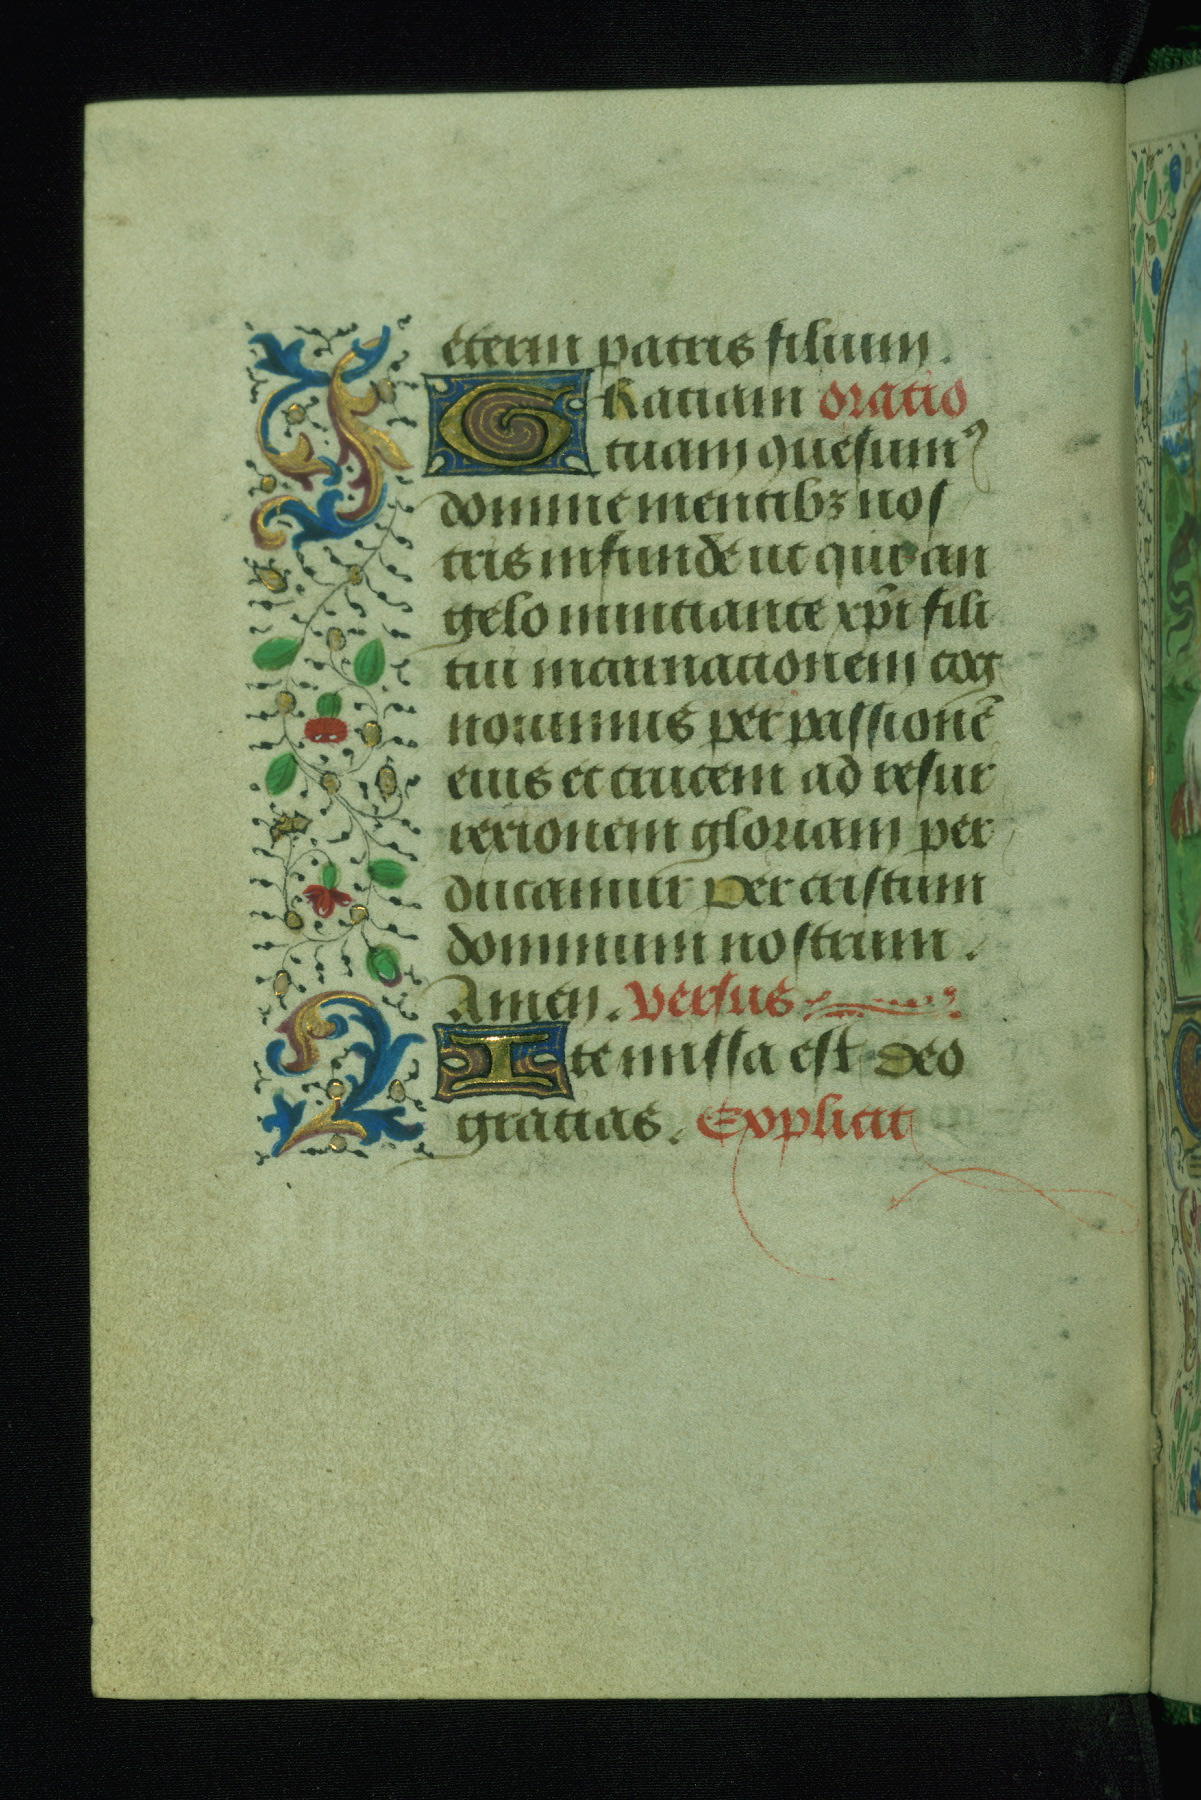 eterni patris filium.
GRatiam oratio
tuam quesumꝰ
domine mentibꝫ nos
tris infunde ut qui an
gelo nunciante xp̄i fili
tui incarnationem cog
nouimus per passionē
eius et crucem ad resur
rexionem gloriam per
ducamur Per cristum
dominum nostrum.
Amen. Versus
Ite missa est Deo
gracias. Explicit